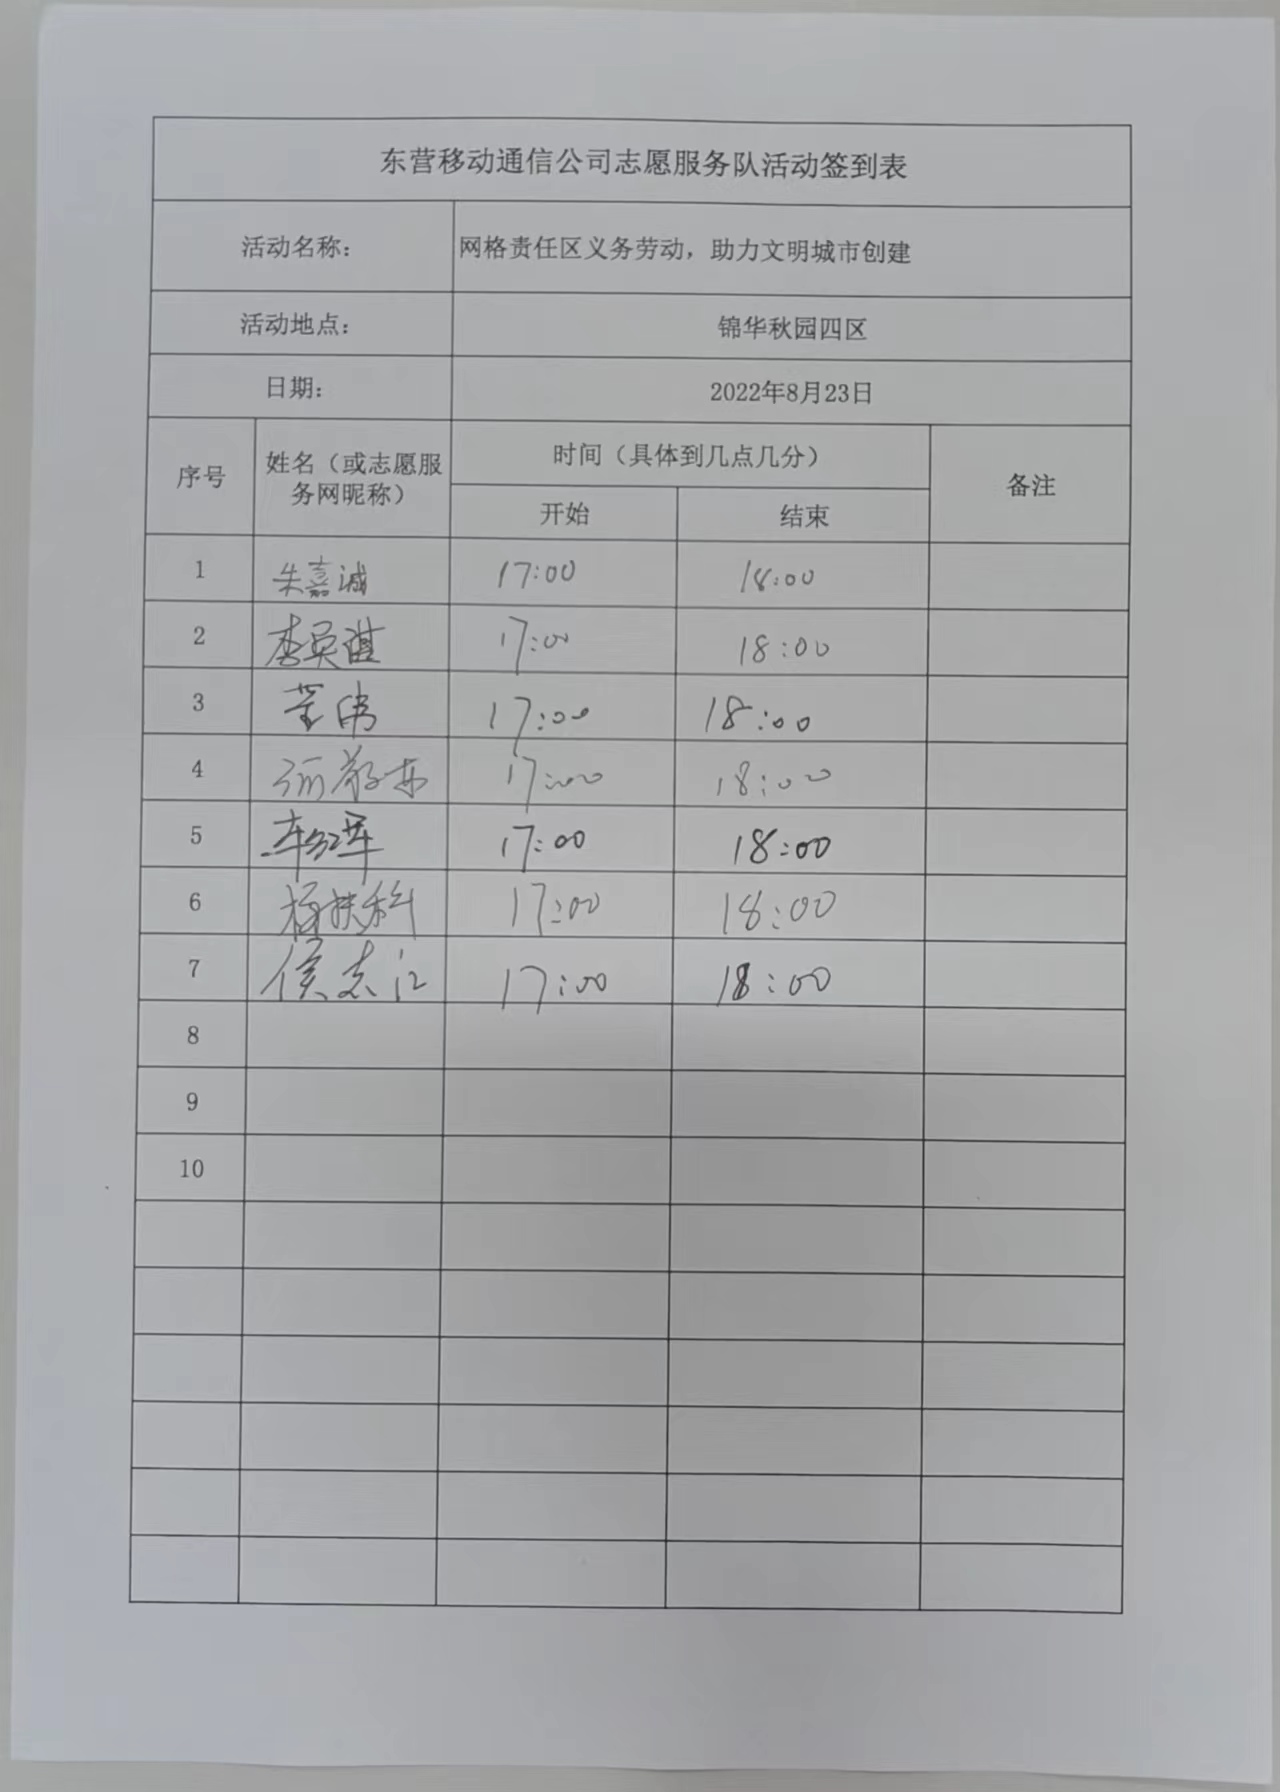 东营移动通信公司志愿服务队活动签到表
活动名称： 网格责任区义务劳动，助力文明城市创建
活动地点： 锦华秋园四区
日期： 2022年8月23日
序号 姓名（或志愿服务网昵称） 时间（具体到几点几分） 备注
开始 结束
1 朱嘉诚 17:00 18:00
2 李昊谌 17:00 18:00
3 董伟 17:00 18:00
4 17:00 18:00
5 17:00 18:00
6 杨扶科 17:00 18:00
7 侯志江 17:00 18:00
8
9
10